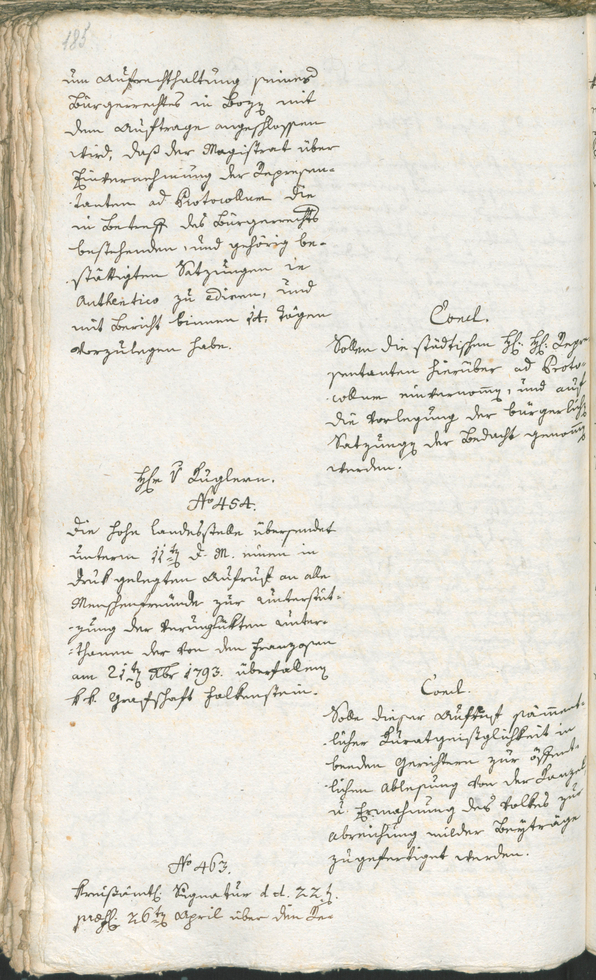 185.
um Aufrechthaltung seines
Bürgerrechtes in Bozn mit
dem Auftrage angeschlossen
wird, daß der Magistrat über
Einvernehmung der Repræsen-
tanten ad Protocollum die
in Betreff des Bürgerrechts
bestehenden, und gehörig be-
stättigten Satzungen in
Authentico zu ediren, und
mit Bericht binnen 14. Tägen
vorzulegen habe.
Concl.
Sollen die städtischen HH. HH. Repre-
sentanten hierüber ad Proto-
collum einvernomm, und auf
die Vorlegung der bürgerlich
Satzungn der Bedacht genomm
werden.
Hr v Kuglern.
No 454.
Die hohe Landesstelle übersendet
unterm 11tn d. M. einen in
Druk gelegten Aufruf an alle
Menschenfreünde zur Unterstüt-
zung der verunglükten Unter-
thanen der von den Franzosen
am 21tn Xbr 1793. überfallenen
k. k. Grafschaft Falkenstein.
Concl.
Solle dieser Aufruf sämment-
licher Curatgeistlichkeit in
beeden Gerichtern zur öffent-
lichen Ablesung von der Kanzel
u. Ermahnung des Volkes zur
Abreichung milder Beyträge
zugefertiget werden.
No 463.
Kreisämtl. Signatur dd. 22t.
præs. 26tn April über den Re-